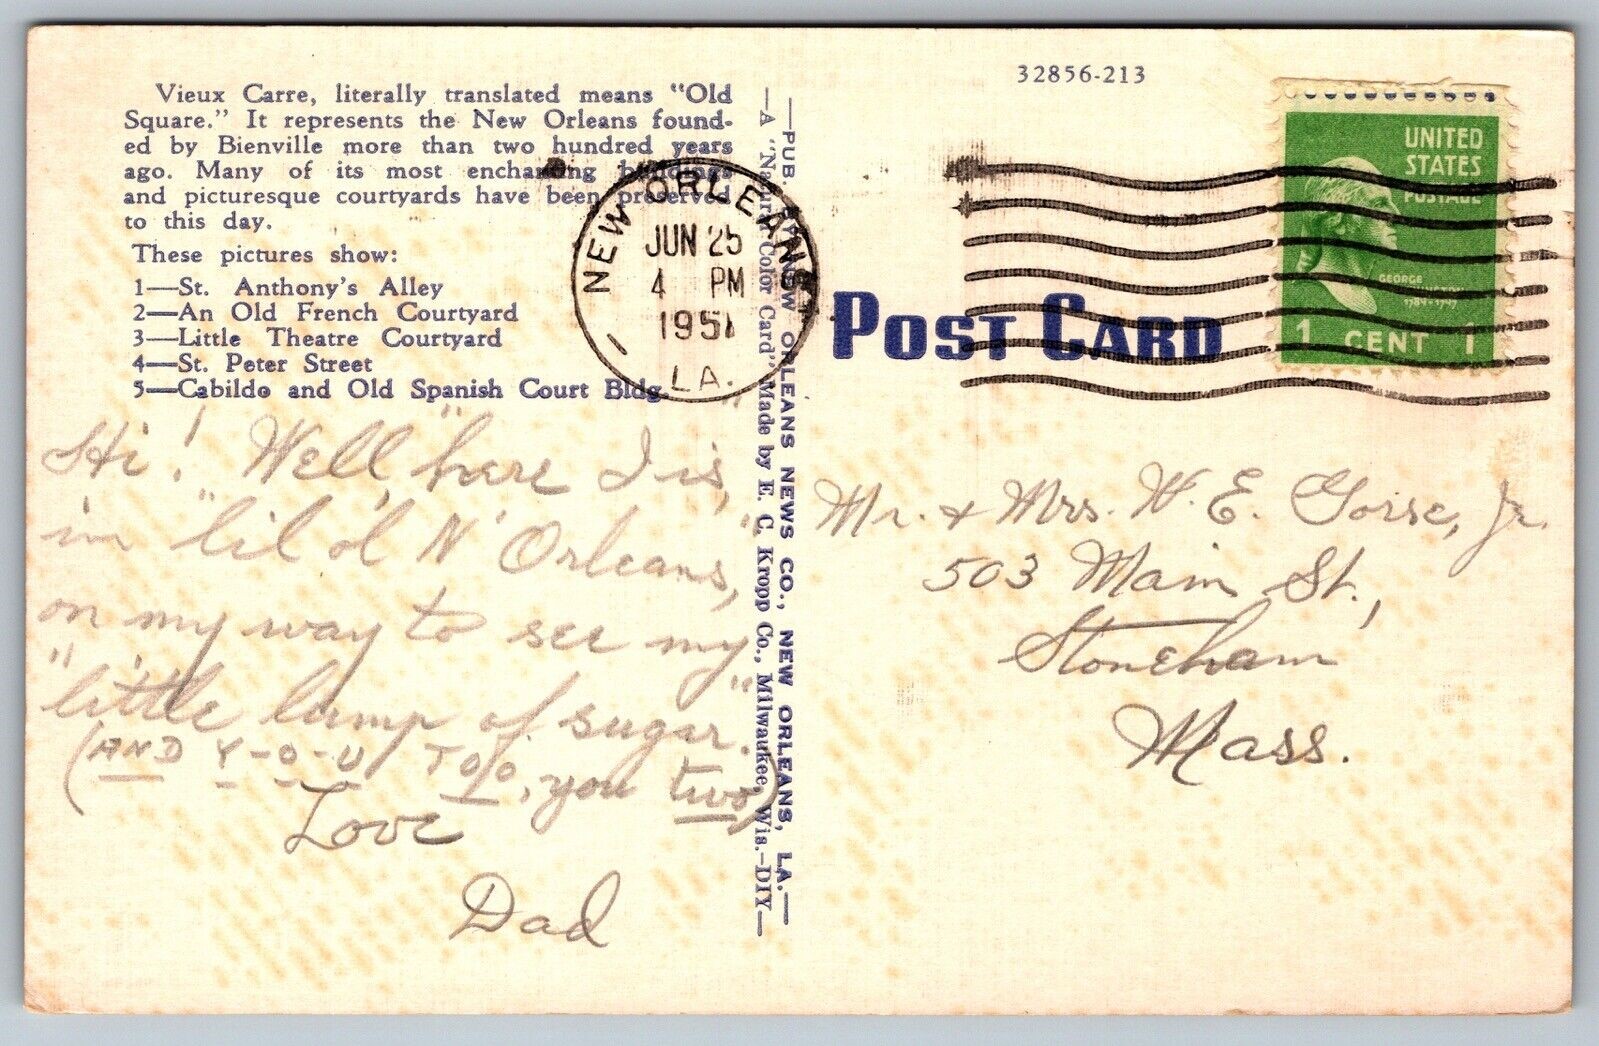 32856-213
Vieux Carre, literally translated means "Old
Square." It represents the New Orleans found-
ed by Bienville more than two hundred years
ago. Many of its most enchanting buildings
and picturesque courtyards have been preserved
to this day.
These pictures show:
1—St. Anthony's Alley
2—An Old French Courtyard
3—Little Theatre Courtyard
4—St. Peter Street
5—Cabildo and Old Spanish Court Bldg.
Hi! Well, "here I is,
in "lil ol N'Orleans,"
on my way to see my
"little lump of sugar."
(AND Y-O-U TOO, you two)
Love
Dad
—PUB. BY NEW ORLEANS NEWS CO., NEW ORLEANS, LA.—
—A "Natural Color Card" Made by E. C. Kropp Co., Milwaukee, Wis.—DIY—
NEW ORLEANS
JUN 25
4 PM
1951
LA.
1
UNITED
STATES
POSTAGE
GEORGE
WASHINGTON
1789-1797
1 CENT 1
POST CARD
Mr. & Mrs. W. E. Gorse, Jr.
503 Main St.,
Stoneham
Mass.